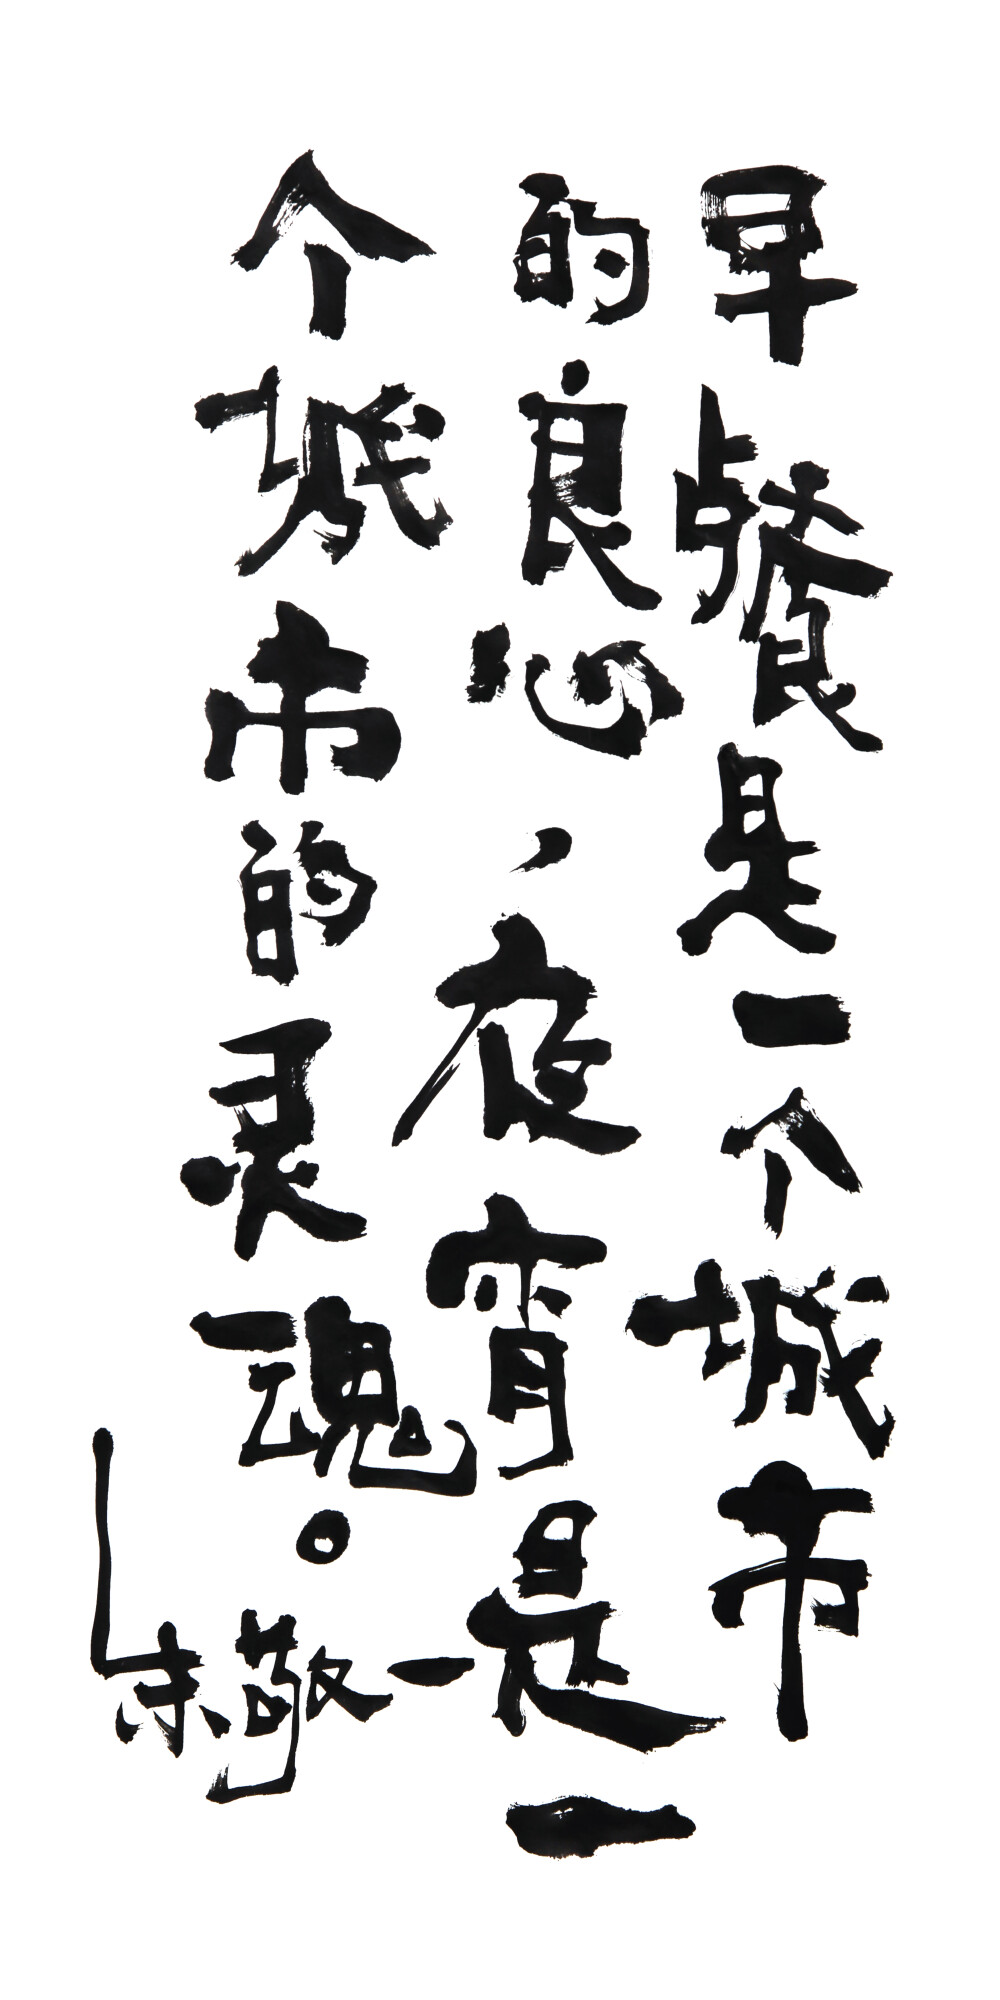 早餐是一个城市
的良心，夜宵是一
个城市的灵魂。
朱敬一